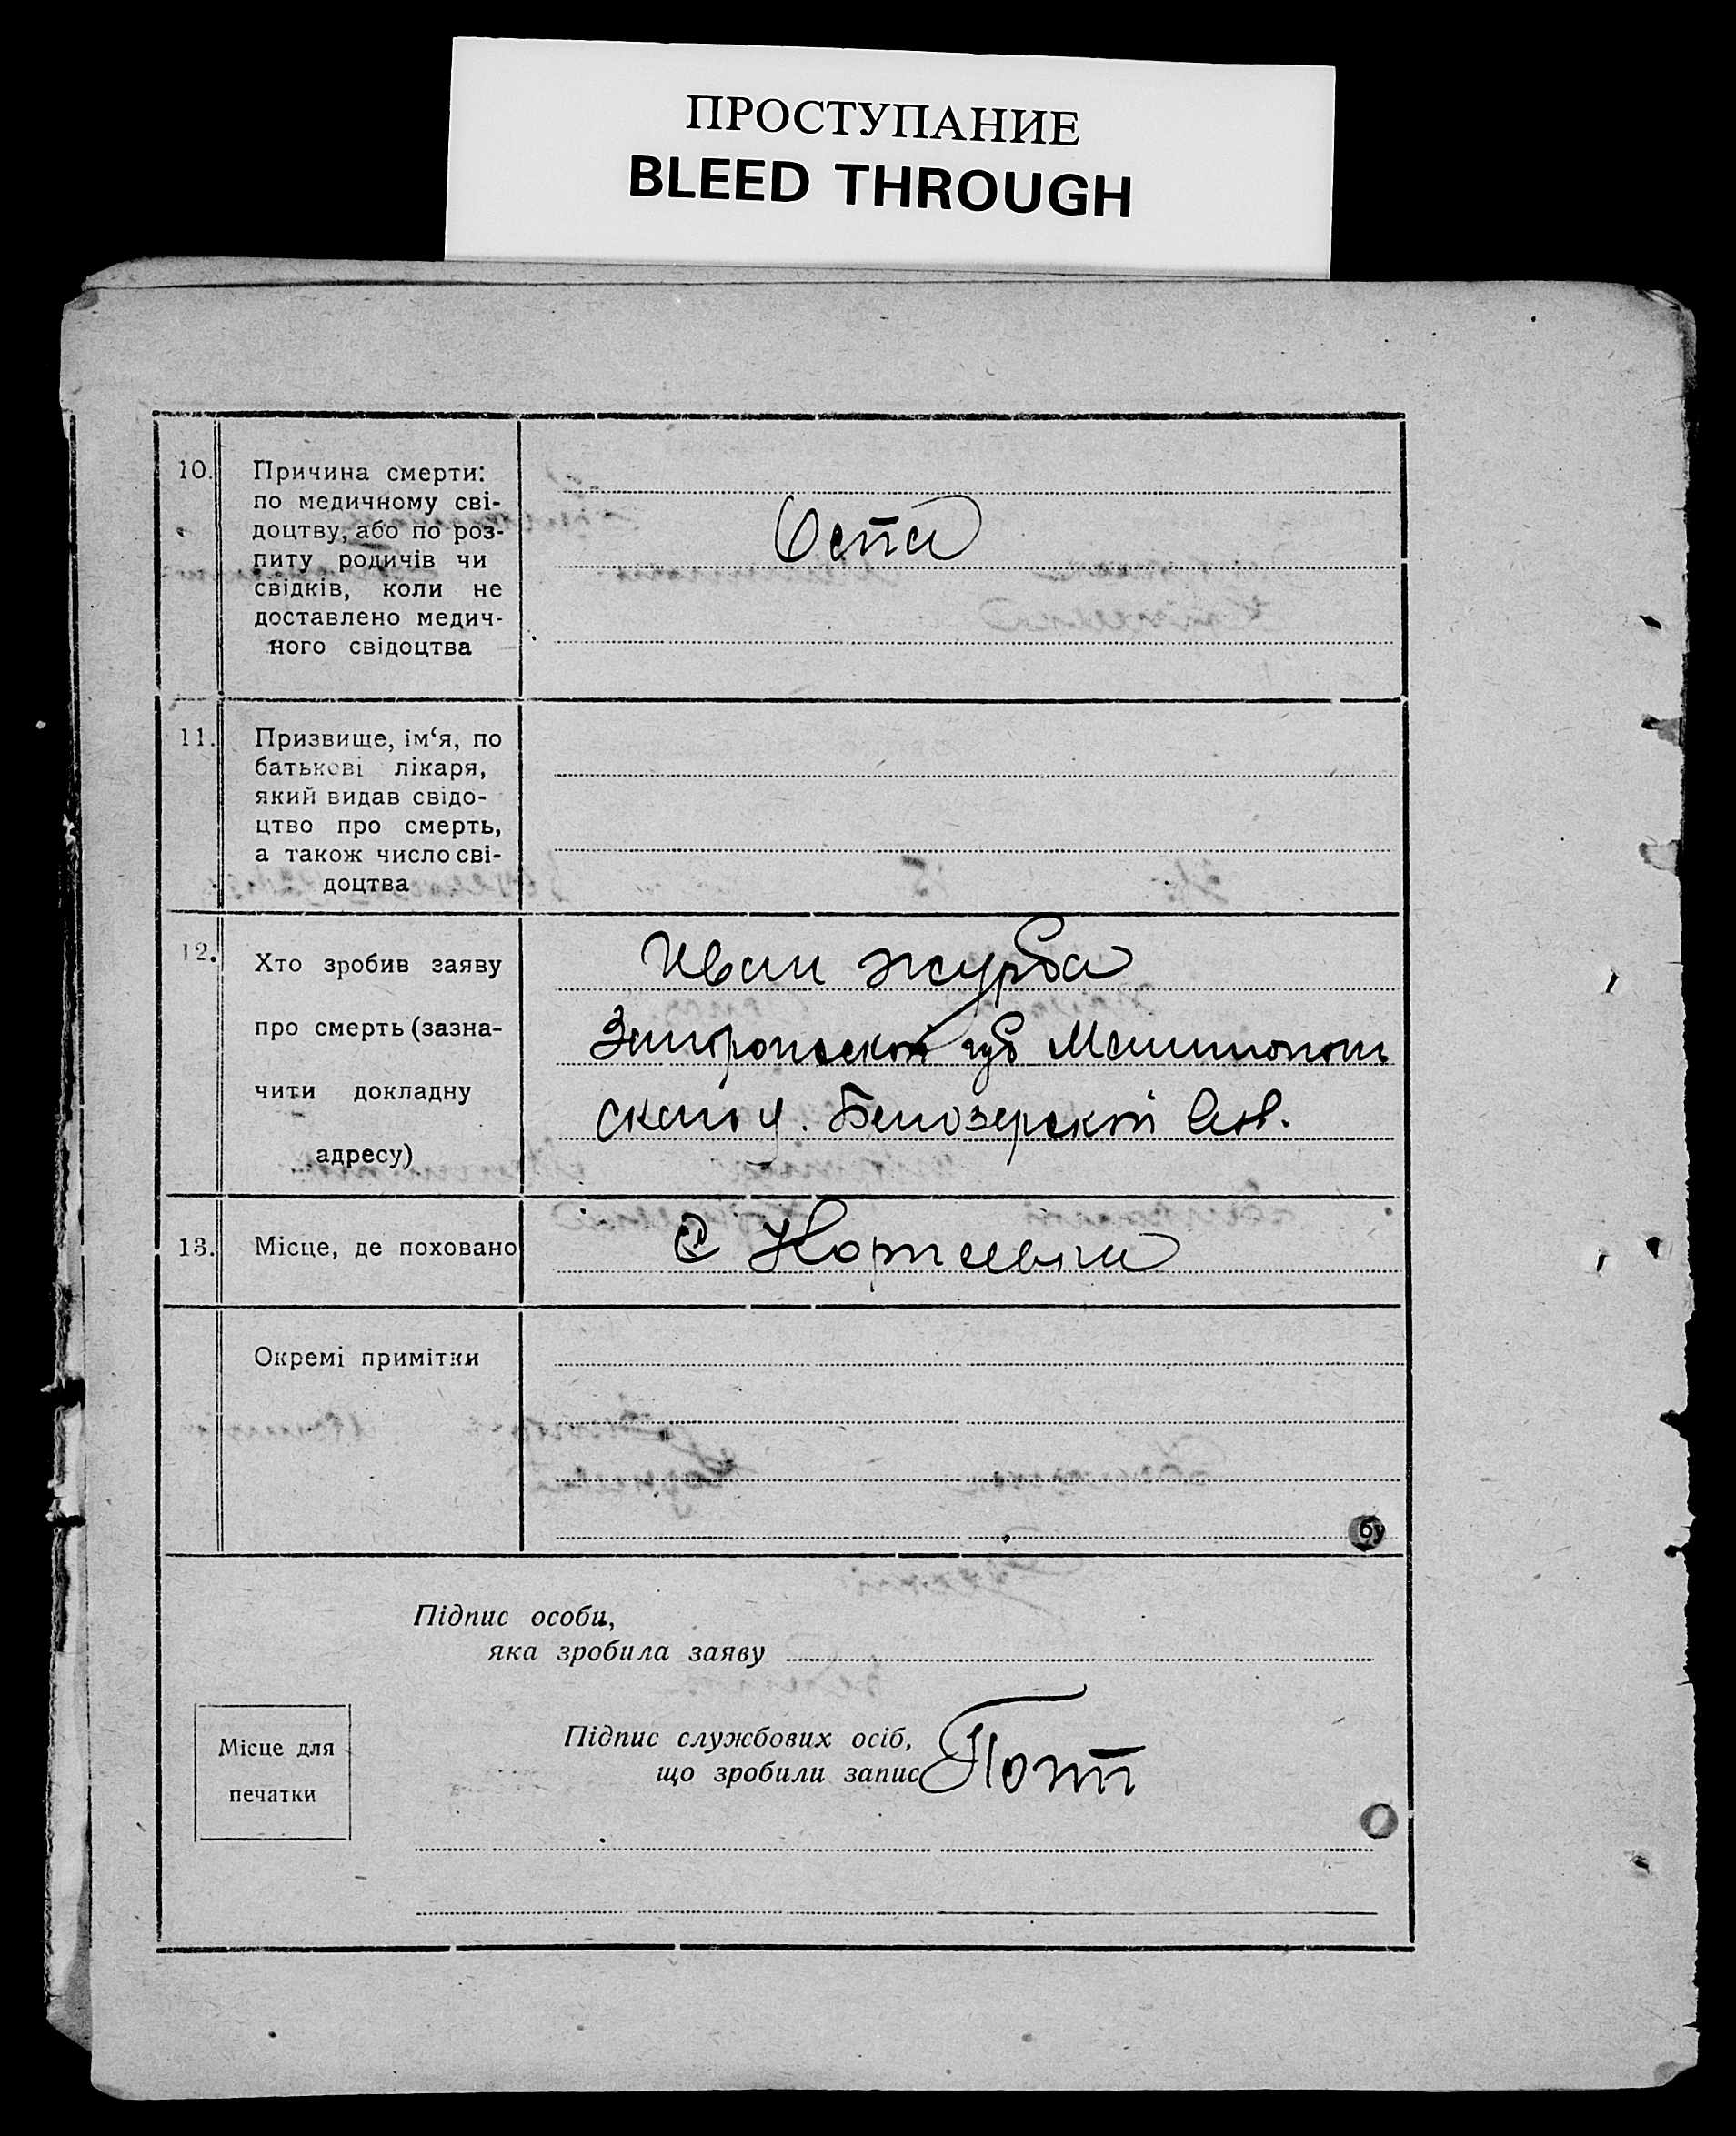 ПРОСТУПАНИЕ
BLEED THROUGH
10.
Причина смерти:
по медичному сві-
доцтву, або по роз-
питу родичів чи
свідків, коли не
доставлено медич-
ного свідоцтва
Оспа
11.
Призвище, ім‘я, по
батькові лікаря,
який видав свідо-
цтво про смерть,
а також число сві-
доцтва
12.
Хто зробив заяву
про смерть (зазна-
чити докладну
адресу)
Иван Журба
губ
у. Белозерской Вол.
13.
Місце, де поховано
С
Окремі примітки
Підпис особи,
яка зробила заяву
Місце для
печатки
Підпис службових осіб,
що зробили запис